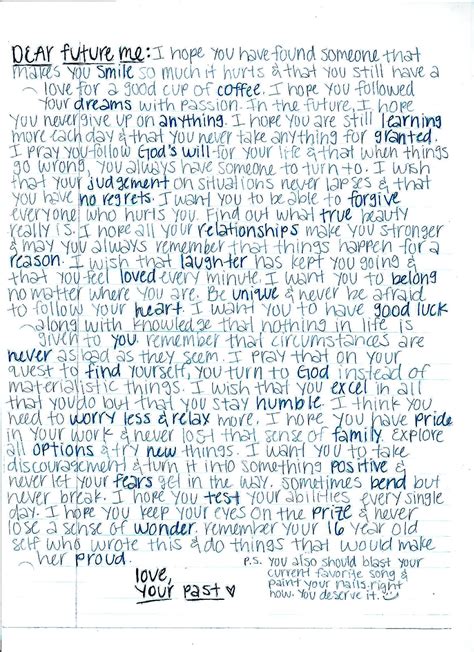 DEAR future me: I hope you have found someone that
makes you smile so much it hurts & that you still have a
love for a good cup of coffee. I hope you followed
your dreams with passion. In the future, I hope
you never give up on anything. I hope you are still learning
more each day & that you never take anything for granted.
I pray you follow God's will for your life & that when things
go wrong, you always have someone to turn to. I wish
that your judgement on situations never lapses & that
you have no regrets. I want you to be able to forgive
everyone who hurts you. Find out what true beauty
really is. I hope all your relationships make you stronger
& may you always remember that things happen for a
reason. I wish that laughter has kept you going &
that you feel loved every minute. I want you to belong
no matter where you are. Be unique & never be afraid
to follow your heart. I want you to have good luck
along with knowledge that nothing in life is
given to you. remember that circumstances are
never as bad as they seem. I pray that on your
quest to find yourself, you turn to God instead of
materialistic things. I wish that you excel in all
that you do but that you stay humble. I think you
need to worry less & relax more. I hope you have pride
in your work & never lost that sense of family. Explore
all options & try new things. I want you to take
discouragement & turn it into something positive &
never let your fears get in the way. sometimes bend but
never break. I hope you test your abilities every single
day. I hope you keep your eyes on the prize & never
lose a sense of wonder. remember your 16 year old
self who wrote this & do things that would make
her proud.
love,
your past ♥
P.S. you also should blast your
current favorite song &
paint your nails right
now. You deserve it. :)